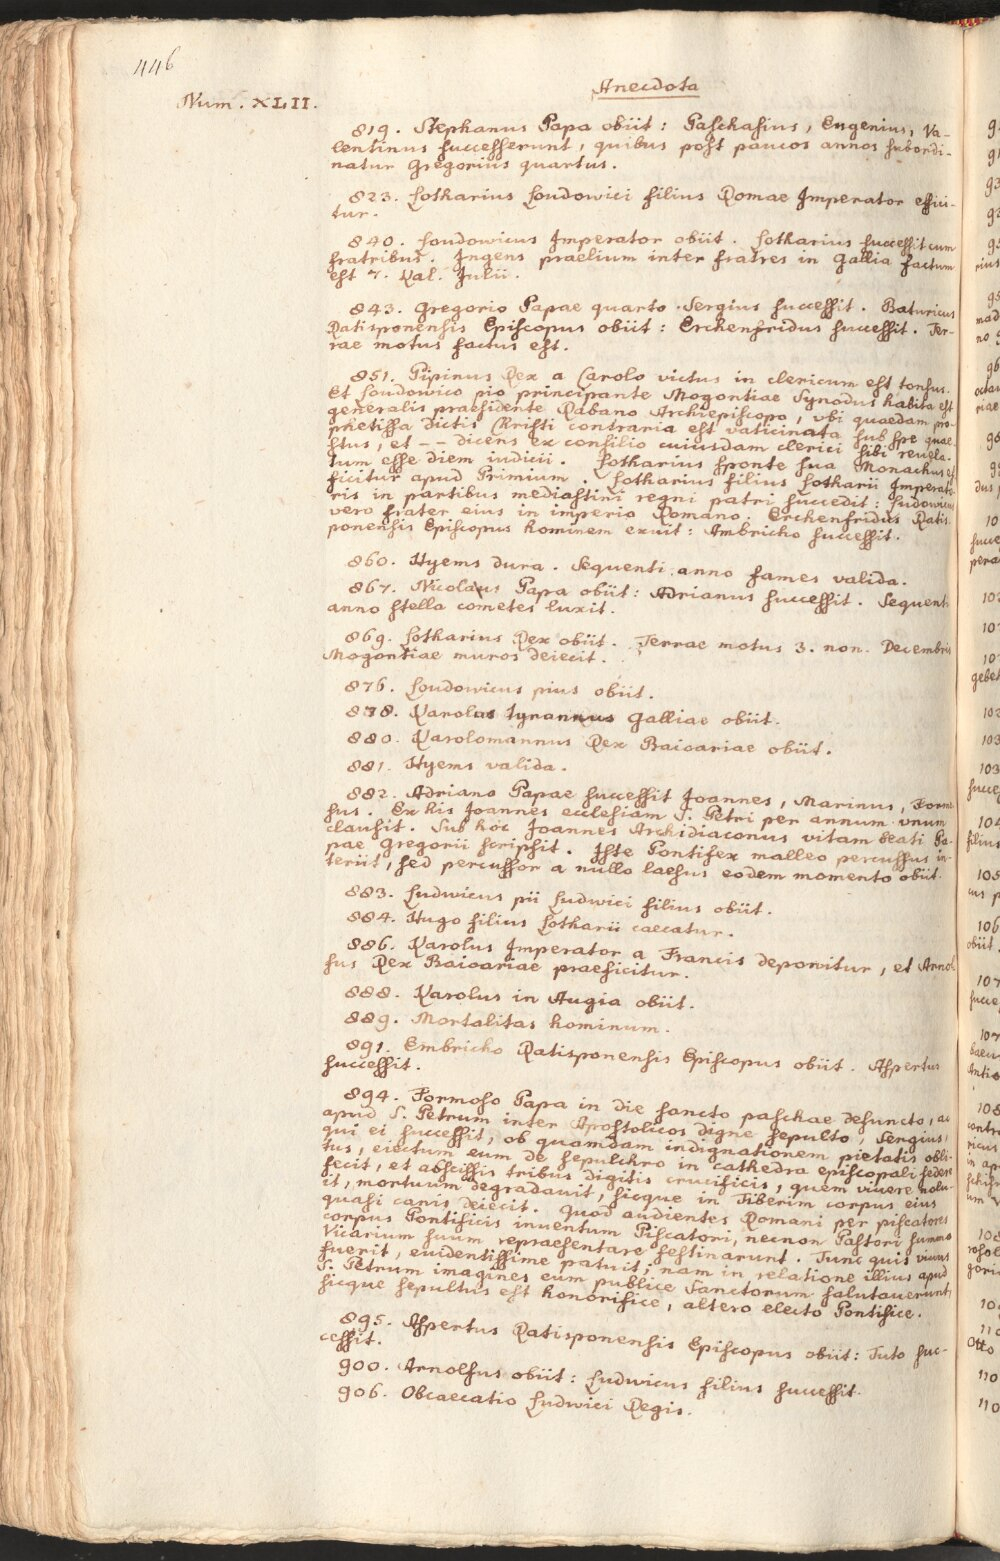 446
Num. XLII.
Anecdota
819. Stephanus Papa obiit: Paschasius, Eugenius, Va-
lentinus successerunt, quibus post paucos annos subordi-
natur Gregorius quartus.
823. Lotharius Loudowici filius Romae Imperator effici-
tur.
840. Loudowicus Imperator obiit. Lotharius successit cum
fratribus. Ingens praelium inter fratres in Gallia factum
est 7. Kal. Julii.
843. Gregorio Papae quarto Sergius successit. Baturicus
Ratisponensis Episcopus obiit: Erchenfridus successit. Ter-
rae motus factus est.
851. Pipinus Rex a Carolo victus in clericum est tonsus.
Et Loudowico pio principante Mogontiae Synodus habita est
generalis praesidente Rabano Archiepiscopo, vbi quaedam pro-
phetissa dictis Christi contraria est vaticinata sub spe quae-
stus, et -- dicens ex consilio cuiusdam clerici sibi reuela-
tum esse diem iudicii. Lotharius sponte sua Monachus ef-
ficitur apud Primium. Lotharius filius Lotharii Imperato-
ris in partibus mediastini regni patri succedit: Ludowicus
vero frater eius in imperio Romano. Erchenfridus Ratis-
ponensis Episcopus hominem exuit: Ambricho successit.
860. Hyems dura. Sequenti anno fames valida.
867. Nicolaus Papa obiit: Adrianus successit. Sequenti
anno stella cometes luxit.
869. Lotharius Rex obiit. Terrae motus 3. non. Decembris
Mogontiae muros deiecit.
876. Loudowicus pius obiit.
878. Karolus tyrannus Galliae obiit.
880. Karolomannus Rex Baioariae obiit.
881. Hyems valida.
882. Adriano Papae successit Joannes, Marinus, Formo-
sus. Ex his Joannes ecclesiam S. Petri per annum vnum
clausit. Sub hoc Joannes Archidiaconus vitam beati Pa-
pae Gregorii scripsit. Iste Pontifex malleo percussus in-
teriit, sed percussor a nullo laesus eodem momento obiit.
883. Ludwicus pii Ludwici filius obiit.
884. Hugo filius Lotharii caecatur.
886. Karolus Imperator a Francis deponitur, et Arnol-
fus Rex Baioariae praeficitur.
888. Karolus in Augia obiit.
889. Mortalitas hominum.
891. Embricho Ratisponensis Episcopus obiit. Aspertus
successit.
894. Formoso Papa in die sancto paschae defuncto, ac
apud S. Petrum inter Apostolicos digne sepulto, Sergius,
qui ei successit, ob quamdam indignationem pietatis obli-
tus, eiectum eum de sepulchro in cathedra episcopali sedere
fecit, et abscissis tribus digitis crucificis, quem vivere nolu-
it, mortuum degradauit, sicque in Tiberim corpus eius
quasi canis deiecit. Quod audientes Romani per piscatores
corpus Pontificis inuentum Piscatori, necnon Pastori summo
Vicarium suum repraesentare festinarunt. Tunc quis vivus
fuerit, euidentissime patuit, nam in relatione illius apud
S. Petrum imagines eum publice Sanctorum salutauerunt,
sicque sepultus est honorifice, altero electo Pontifice.
895. Aspertus Ratisponensis Episcopus obiit: Tuto suc-
cessit.
900. Arnolfus obiit: Ludwicus filius successit.
906. Obcaecatio Ludwici Regis.